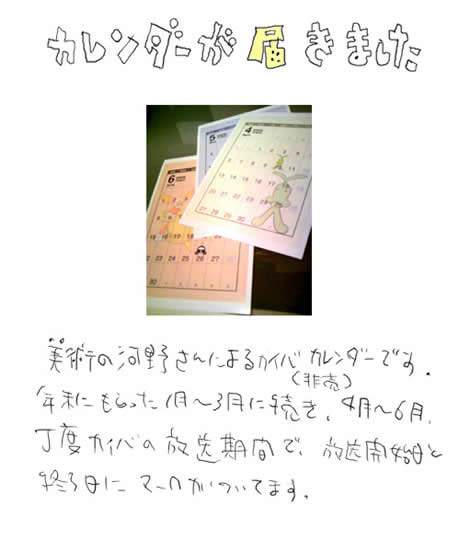 カレンダーが届きました
6
5
4
美術の河野さんによるカイバカレンダーです。
(非売)
年末にもらった1月〜3月に続き、4月〜6月。
丁度カイバの放送期間で、放送開始日と
終了日にマークがついてます。